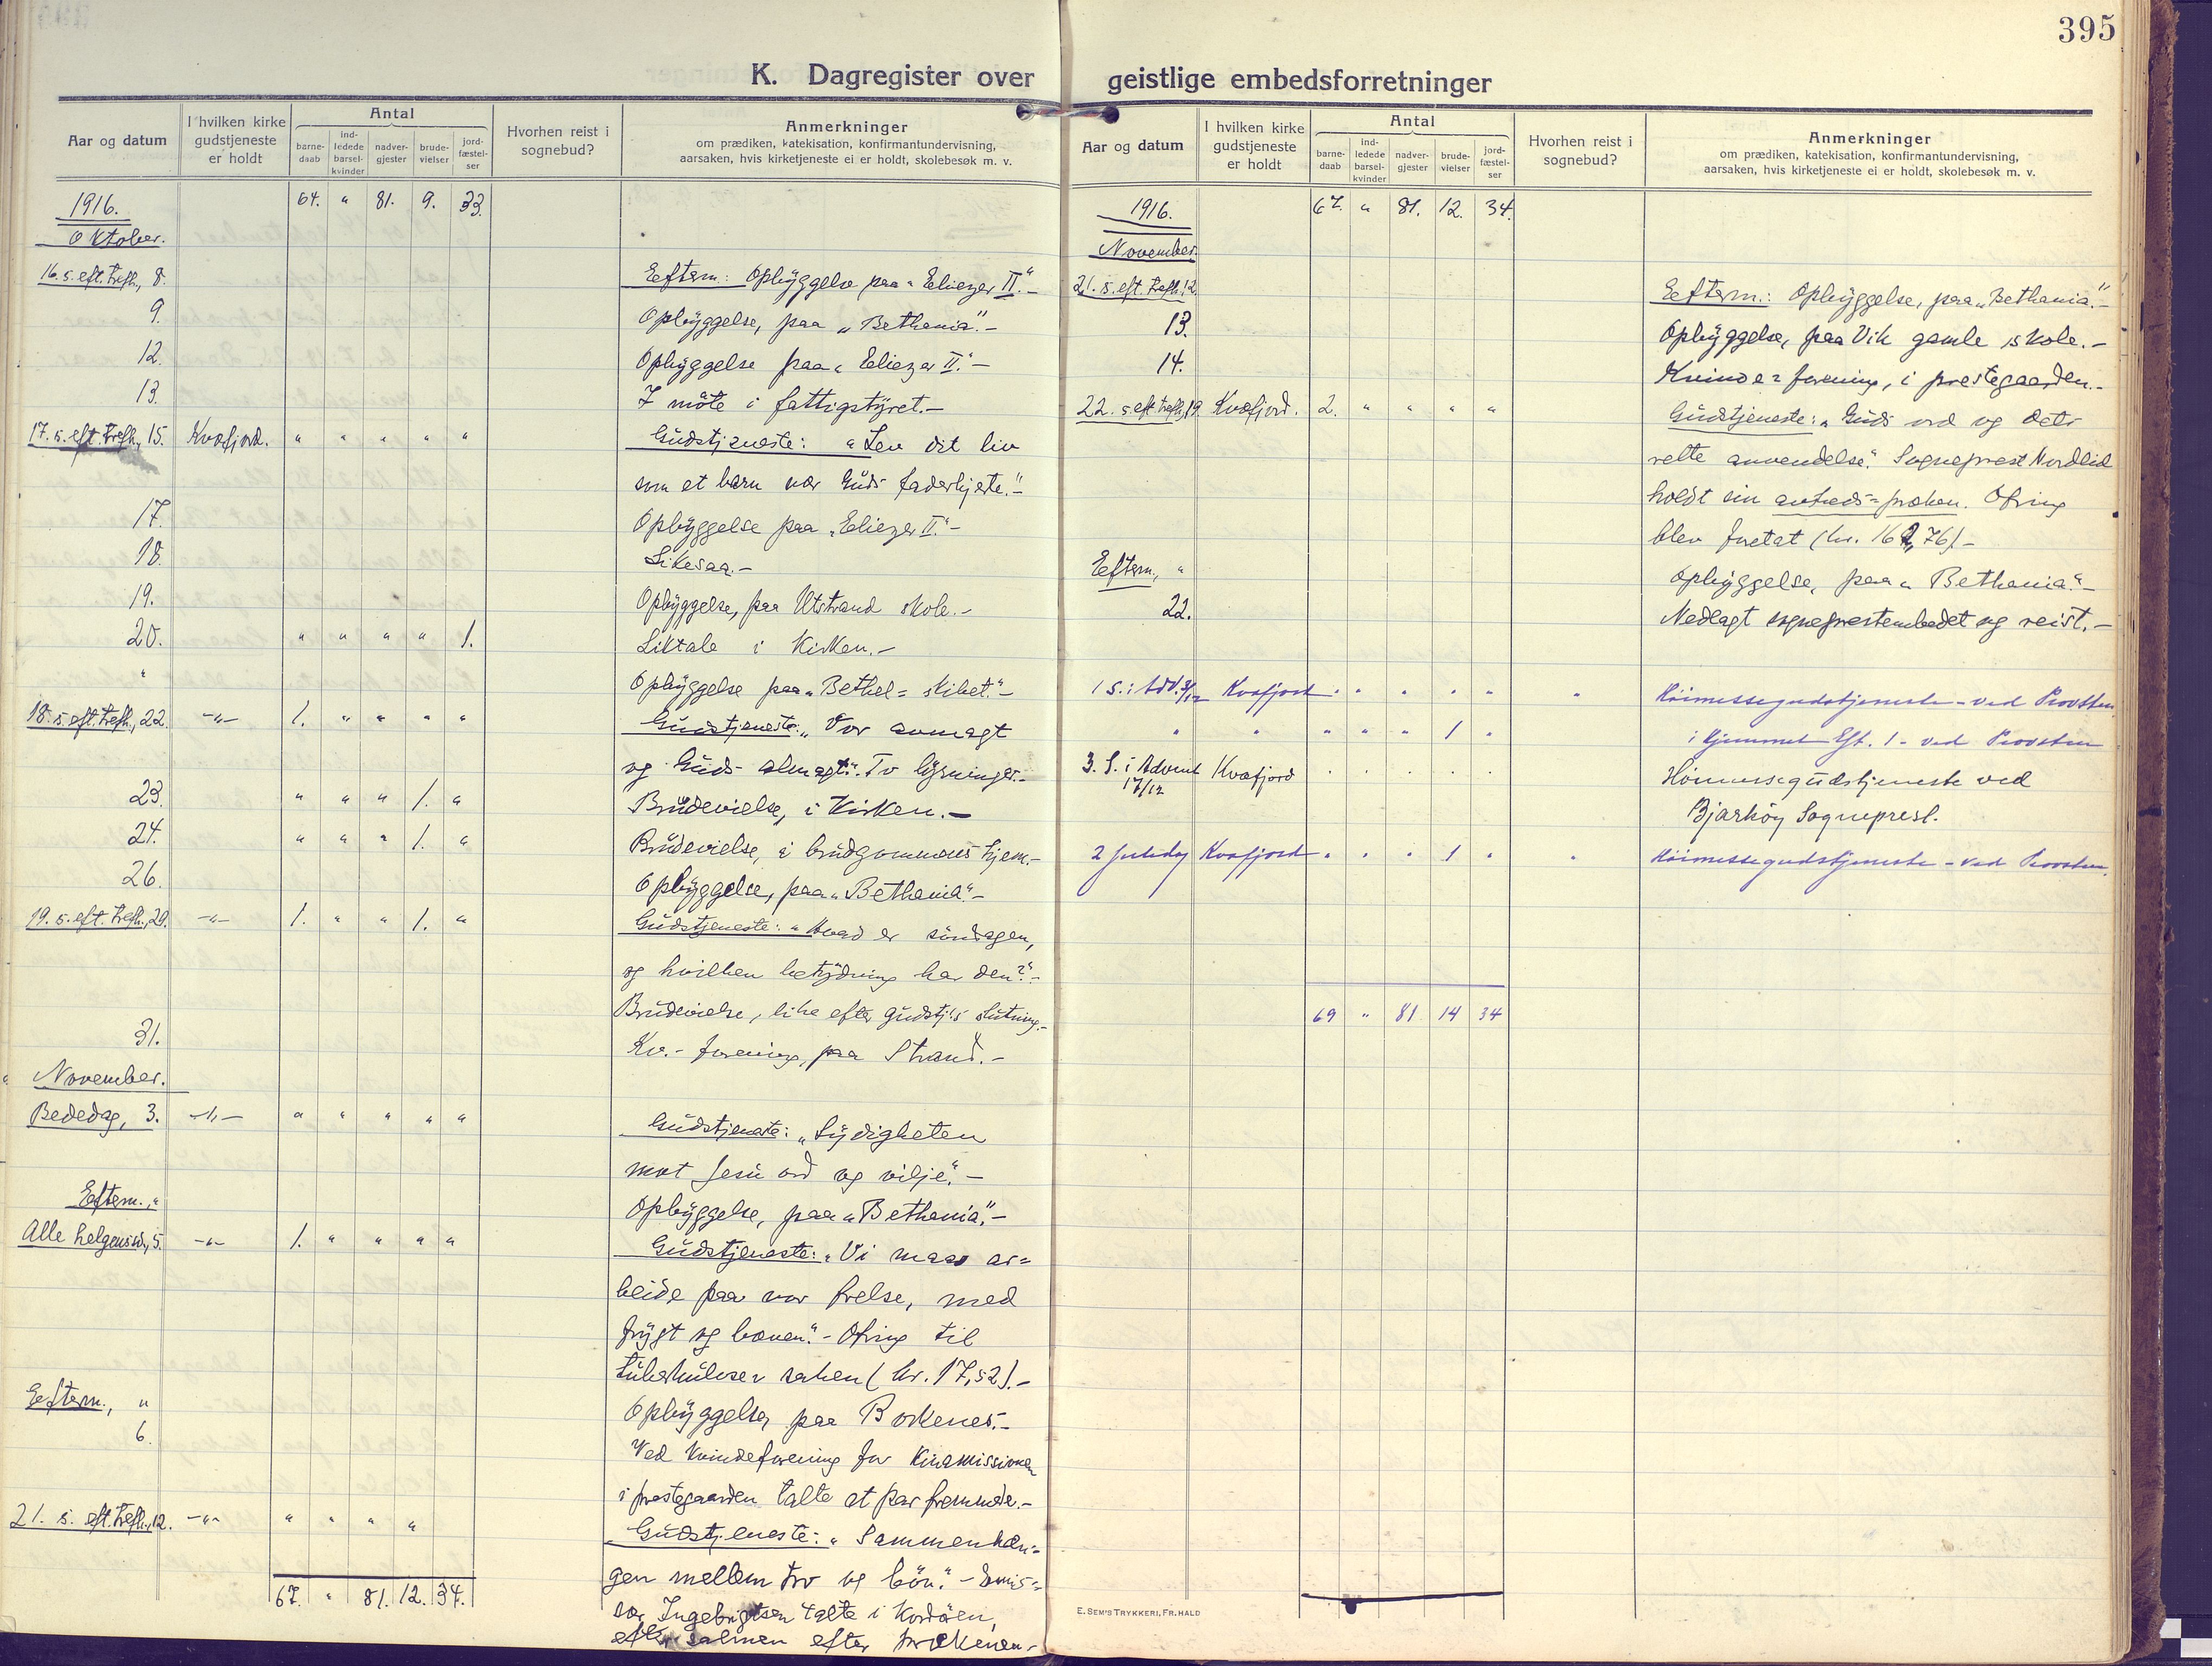 395
K. Dagregister over geistlige embedsforretninger
Aar og datum
I hvilken kirke gudstjeneste er holdt
Antal
barne-daab
ind-ledede barsel-kvinder
nadver-gjester
brude-vielser
jord-fæstel-ser
Hvorhen reist i sognebud?
Anmerkninger
om prædiken, katekisation, konfirmantundervisning,
aarsaken, hvis kirketjeneste ei er holdt, skolebesøk m. v.
1916. 64. " 81. 9. 33.
Oktober.
16. s. eft. trefh., 8. Eefterm.: Opbyggelse paa "Eliezer II."-
9. Opbyggelse, paa "Bethania".-
12. Opbyggelse paa "Eliezer II."-
13. I møte i fattigstyret.-
17. s. eft. trefh., 15. Kvæfjord. " " " " " Gudstjeneste: "Lev dit liv
som et barn nær Guds faderhjerte."-
17. Opbyggelse paa "Eliezer II."-
18. Likesaa.-
19. Opbyggelse, paa Utstrand skole.-
20. " " " " 1. Liktale i Kirken.-
" Opbyggelse paa "Bethel=skibet."-
18. s. eft. trefh., 22. -"- 1. " " " " Gudstjeneste: "Vor avmagt
og Guds almagt". To lysninger.-
23. " " " 1. " Brudevielse, i Kirken.-
24. " " " 1. " Brudevielse, i brudgommens hjem.-
26. Opbyggelse, paa "Bethania"-
19. s. eft. trefh., 29. -"- 1. " " 1. " Gudstjeneste: "Hvad er søndagen,
og hvilken betydning har den?"-
Brudevielse, like efter gudstj.'s slutning.-
31. Kv.-forening, paa Strand.-
November.
Bededag, 3. -"- " " " " " Gudstjeneste: "Lydigheten
mot Jesu ord og vilje".-
Eefterm., " Opbyggelse, paa "Bethania".-
Alle helgens d., 5. -"- 1. " " " " Gudstjeneste: "Vi maa ar=
beide paa vor frelse, med
frygt og bæven".- Ofring til
tuberkulose= saken (kr. 17,52).-
Eefterm., " Opbyggelse, paa Borkenes.-
6. Ved Kvindeforening for Kinamissionen
i prestegaarden talte et par fremmede.-
21. s. eft. trefh., 12. -"- " " " " Gudstjeneste: "Sammenhæn=
gen mellem tro og bøn".- Emis=
sær Ingebrigtsen talte i Kordøen,
efter salmen efter prækenen.-
67. " 81. 12. 34.
Aar og datum
I hvilken kirke gudstjeneste er holdt
Antal
barne-daab
ind-ledede barsel-kvinder
nadver-gjester
brude-vielser
jord-fæstel-ser
Hvorhen reist i sognebud?
Anmerkninger
om prædiken, katekisation, konfirmantundervisning,
aarsaken, hvis kirketjeneste ei er holdt, skolebesøk m. v.
1916. 67. " 81. 12. 34.
November.
21. s. eft. trefh., 12. Eefterm.: Opbyggelse, paa "Bethania".-
13. Opbyggelse, paa Vik gamle skole.-
14. Kvinde=forening, i prestegaarden.-
22. s. eft. trefh., 19. Kvæfjord. 2. " " " " Gudstjeneste: "Guds ord og dets
rette anvendelse". Sogneprest Nordlid
holdt sin avskeds=præken. Ofring
blev foretat (kr. 76).-
Eefterm., " Opbyggelse, paa "Bethania".-
22. Nedlagt sogneprestembedet og reist.-
1 S. i Adv. 3/12 Kvæfjord " " " " " " Høimessegudstjeneste - ved Provsten
" " " " " 1 " i hjemmet Eft. 1 - ved Provsten
3. S. i Advent Kvæfjord . . . . . Høimessegudstjeneste ved
17/12 Bjarkøy Sogneprest.
2 Juledag Kvæfjord " " " 1 " " Høimessegudstjeneste - ved Provsten.
69 " 81 14 34
E. SEM'S TRYKKERI, FR. HALD